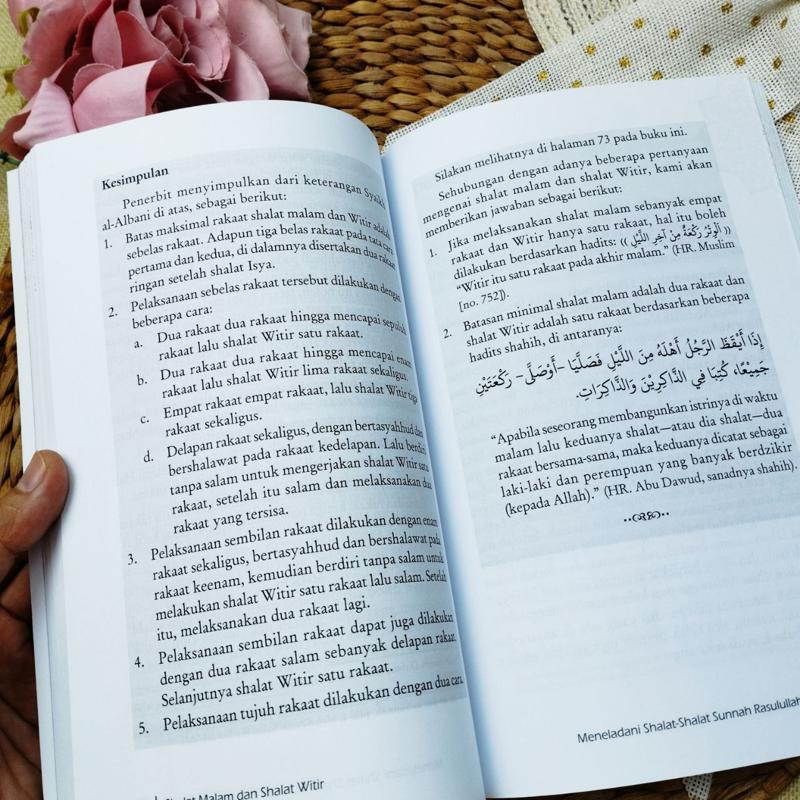 Kesimpulan
Penerbit menyimpulkan dari keterangan Syaikh
al-Albani di atas, sebagai berikut:
1. Batas maksimal rakaat shalat malam dan Witir adalah
sebelas rakaat. Adapun tiga belas rakaat pada tata cara
pertama dan kedua, di dalamnya disertakan dua rakaat
ringan setelah shalat Isya.
2. Pelaksanaan sebelas rakaat tersebut dilakukan dengan
beberapa cara:
a. Dua rakaat dua rakaat hingga mencapai sepuluh
rakaat lalu shalat Witir satu rakaat.
b. Dua rakaat dua rakaat hingga mencapai enam
rakaat lalu shalat Witir lima rakaat sekaligus.
c. Empat rakaat empat rakaat, lalu shalat Witir tiga
rakaat sekaligus.
d. Delapan rakaat sekaligus, dengan bertasyahhud dan
bershalawat pada rakaat kedelapan. Lalu berdiri
tanpa salam untuk mengerjakan shalat Witir satu
rakaat, setelah itu salam dan melaksanakan dua
rakaat yang tersisa.
3. Pelaksanaan sembilan rakaat dilakukan dengan enam
rakaat sekaligus, bertasyahhud dan bershalawat pada
rakaat keenam, kemudian berdiri tanpa salam untuk
melakukan shalat Witir satu rakaat lalu salam. Setelah
itu, melaksanakan dua rakaat lagi.
4. Pelaksanaan sembilan rakaat dapat juga dilakukan
dengan dua rakaat salam sebanyak delapan rakaat.
Selanjutnya shalat Witir satu rakaat.
5. Pelaksanaan tujuh rakaat dilakukan dengan dua cara.
Shalat Malam dan Shalat Witir
Silakan melihatnya di halaman 73 pada buku ini.
Sehubungan dengan adanya beberapa pertanyaan
mengenai shalat malam dan shalat Witir, kami akan
memberikan jawaban sebagai berikut:
1. Jika melaksanakan shalat malam sebanyak empat
rakaat dan Witir hanya satu rakaat, hal itu boleh
dilakukan berdasarkan hadits: (( اَلْوِتْرُ رَكْعَةٌ مِنْ آخِرِ اللَّيْلِ ))
“Witir itu satu rakaat pada akhir malam.” (HR. Muslim
[no. 752]).
2. Batasan minimal shalat malam adalah dua rakaat dan
shalat Witir adalah satu rakaat berdasarkan beberapa
hadits shahih, di antaranya:
إِذَا أَيْقَظَ الرَّجُلُ أَهْلَهُ مِنَ اللَّيْلِ فَصَلَّيَا -أَوْصَلَّى- رَكْعَتَيْنِ
جَمِيْعًا، كُتِبَا فِي الذَّاكِرِيْنَ وَالذَّاكِرَاتِ.
“Apabila seseorang membangunkan istrinya di waktu
malam lalu keduanya shalat—atau dia shalat—dua
rakaat bersama-sama, maka keduanya dicatat sebagai
laki-laki dan perempuan yang banyak berdzikir
(kepada Allah).” (HR. Abu Dawud, sanadnya shahih).
Meneladani Shalat-Shalat Sunnah Rasulullah